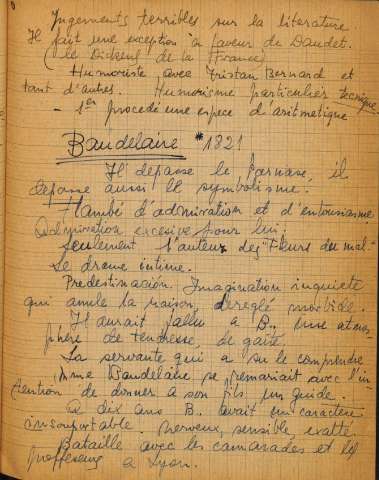 Jugements terribles sur la literature
Il fait une exception à faveur de Daudet.
(le Dickens de la France)
Humoriste avec Tristan Bernard et
tant d'autres. Humorisme particulier
- 1er procédé une espece d'aritmetique
Baudelaire *1821
Il depasse le Parnase, il
depasse aussi le symbolisme.
Flambé d'admiration et d'entousiasme
Admiration excesive pour lui,
Seulement l'auteur des "Fleurs du mal"
Le drame intime.
Predestinacion. Imagination inquiete
qui anule la raison, dereglé morbide.
Il aurait fallu a B., une atmos-
phère de tendresse, de gaité.
La servante qui a su le comprendre
Mme Baudelaire se remariait avec l'in-
tention de donner a son fils un guide.
A dix ans B. avait un caractère
insuportable. nerveux, sensible, exalté
Bataille avec les camarades et les
professeurs a Lyon.